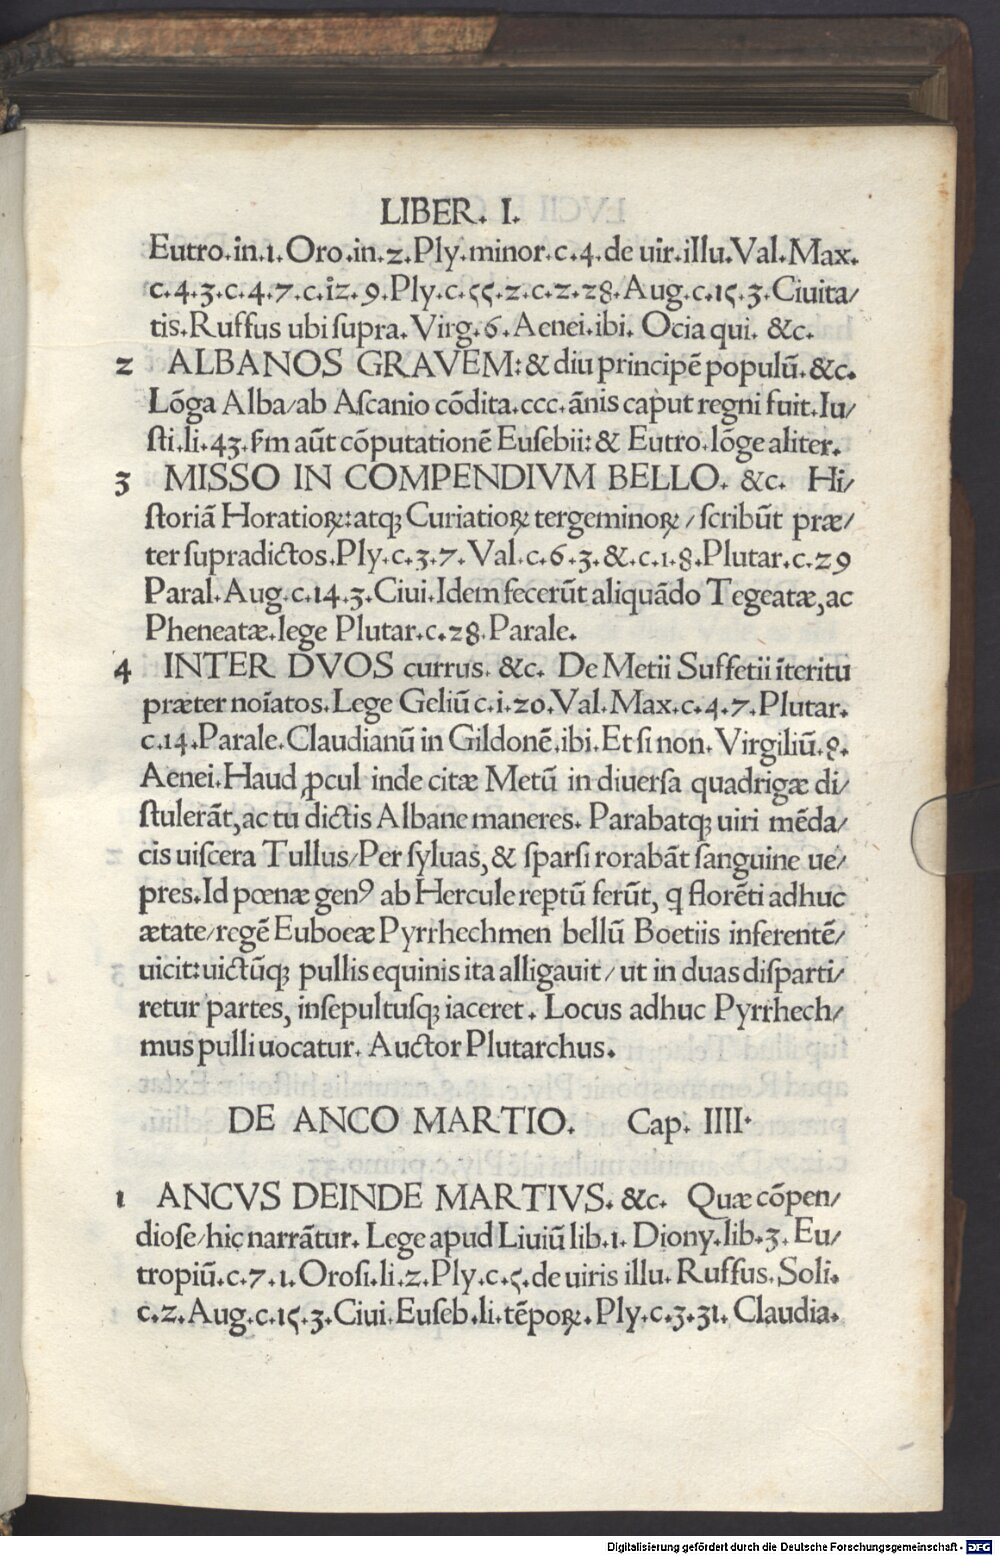 LIBER. I.
Eutro.in.1.Oro.in.2.Ply.minor.c.4.de uir.illu.Val.Max.
c.4.3.c.4.7.c.iz.9.Ply.c.55.2.c.2.28.Aug.c.15.3.Ciuita/
tis.Ruffus ubi supra. Virg.6.Aenei.ibi. Ocia qui. &c.
2 ALBANOS GRAVEM: & diu principē populū. &c.
Lōga Alba/ab Ascanio cōdita.ccc.ānis caput regni fuit.Iu/
sti.li.43. ẜm aūt cōputationē Eusebii: & Eutro.lōge aliter.
3 MISSO IN COMPENDIVM BELLO. &c. Hi/
storiā Horatioꝝ: atqꝫ Curiatioꝝ tergeminoꝝ / scribūt præ/
ter supradictos.Ply.c.3.7.Val.c.6.3.&.c.1.8.Plutar.c.29
Paral.Aug.c.14.3.Ciui.Idem fecerūt aliquādo Tegeatæ, ac
Pheneatæ.lege Plutar.c.28.Parale.
4 INTER DVOS currus. &c. De Metii Suffetii īteritu
præter noīatos.Lege Geliū c.i.20.Val.Max.c.4.7.Plutar.
c.14.Parale.Claudianū in Gildonē.ibi.Et si non.Virgiliū.8.
Aenei.Haud ꝓcul inde citæ Metū in diuersa quadrigæ di/
stulerāt, ac tu dictis Albane maneres. Parabatqꝫ uiri mēda/
cis uiscera Tullus/Per syluas, & sparsi rorabāt sanguine ue/
pres.Id pœnæ genꝰ ab Hercule reptū ferūt, ꝗ florēti adhuc
ætate/regē Euboeæ Pyrrhechmen bellū Boetiis inferentē/
uicit: uictūqꝫ pullis equinis ita alligauit / ut in duas disparti/
retur partes, insepultusqꝫ iaceret. Locus adhuc Pyrrhech/
mus pulli uocatur. Auctor Plutarchus.
DE ANCO MARTIO. Cap. IIII.
1 ANCVS DEINDE MARTIVS. &c. Quæ cōpen/
diose/hic narrātur. Lege apud Liuiū lib.1. Diony.lib.3. Eu/
tropiū.c.7.1.Orosi.li.2.Ply.c.5.de uiris illu.Ruffus.Soli.
c.2.Aug.c.15.3.Ciui.Euseb.li.tēpoꝝ.Ply.c.3.31.Claudia.
Digitalisierung gefördert durch die Deutsche Forschungsgemeinschaft - DFG